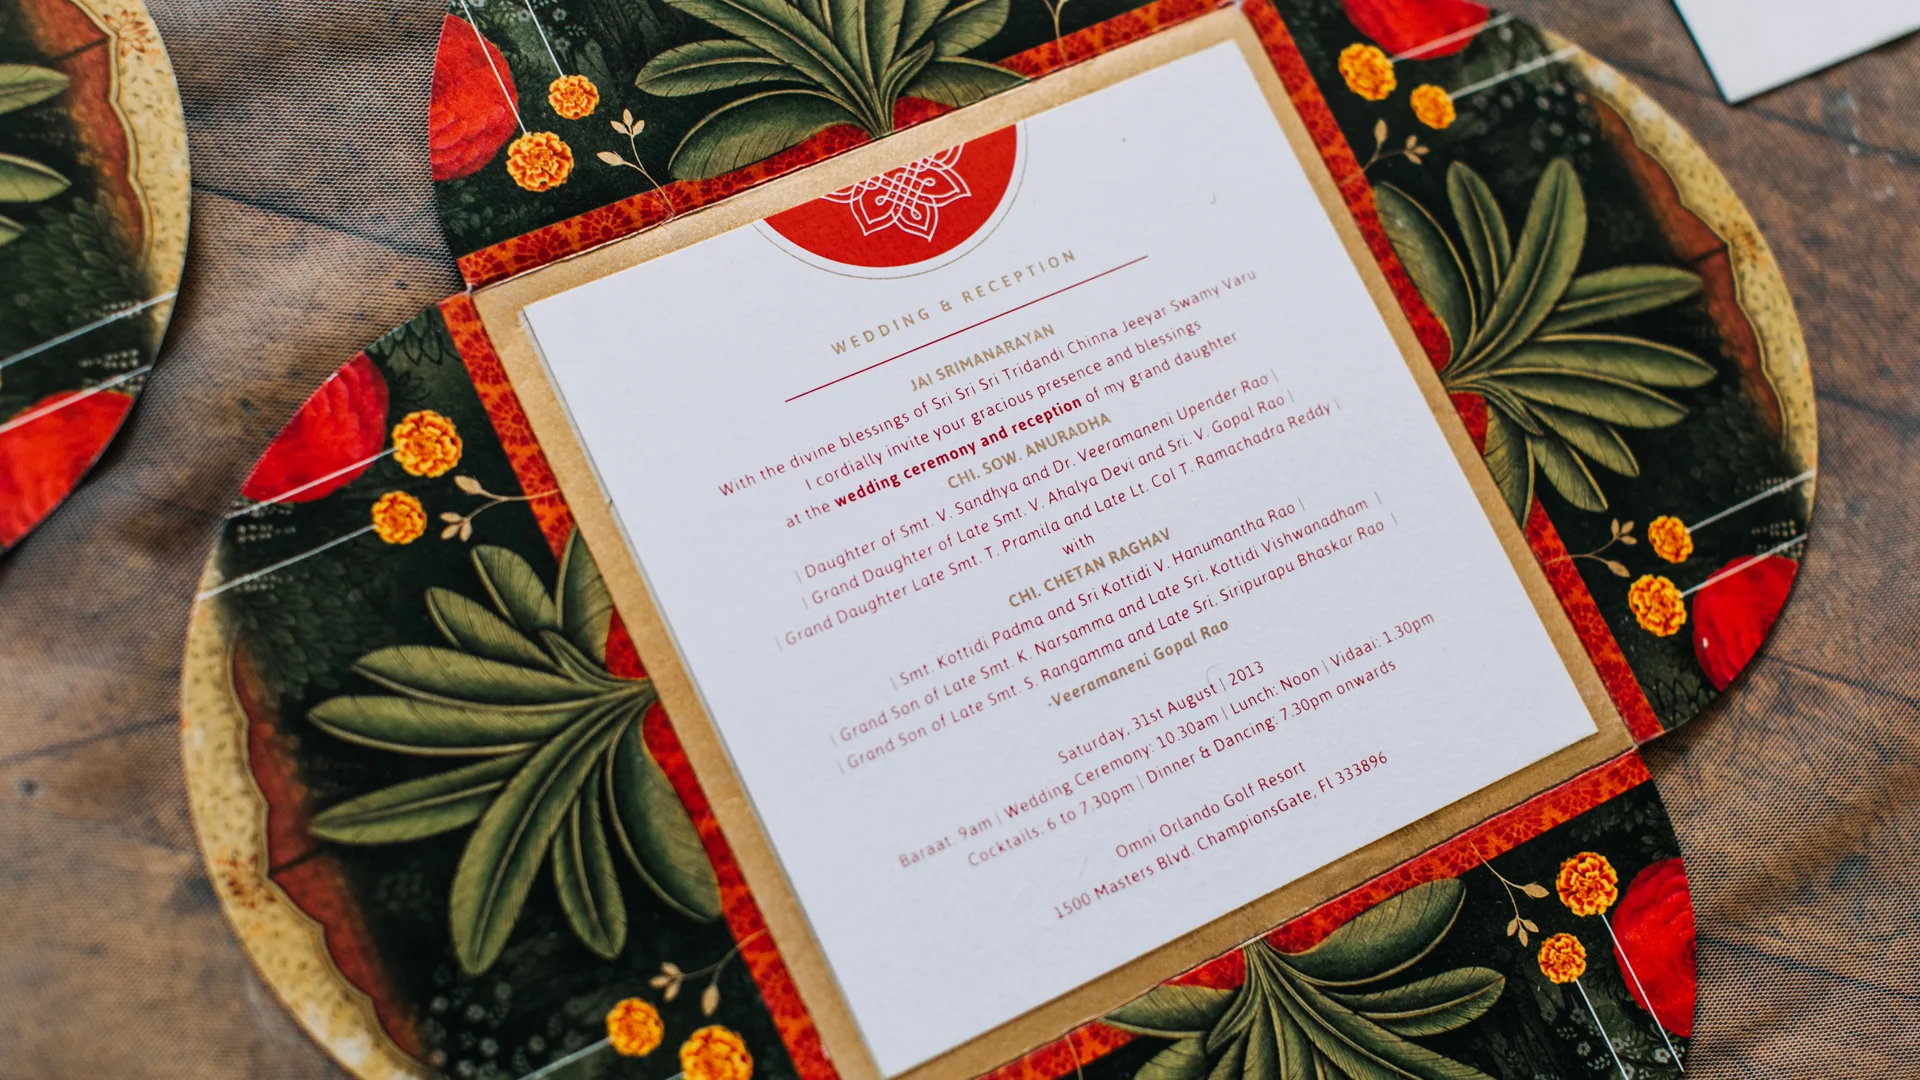 WEDDING & RECEPTION
JAI SRIMANARAYAN
With the divine blessings of Sri Sri Sri Tridandi Chinna Jeeyar Swamy Varu
I cordially invite your gracious presence and blessings
at the wedding ceremony and reception of my grand daughter
CHI. SOW. ANURADHA
| Daughter of Smt. V. Sandhya and Dr. Veeramaneni Upender Rao |
| Grand Daughter of Late Smt. V. Ahalya Devi and Sri. V. Gopal Rao |
| Grand Daughter Late Smt. T. Pramila and Late Lt. Col T. Ramachadra Reddy |
with
CHI. CHETAN RAGHAV
| Smt. Kottidi Padma and Sri Kottidi V. Hanumantha Rao |
| Grand Son of Late Smt. K. Narsamma and Late Sri. Kottidi Vishwanadham |
| Grand Son of Late Smt. S. Rangamma and Late Sri. Siripurapu Bhaskar Rao |
-Veeramaneni Gopal Rao
Saturday, 31st August | 2013
Baraat: 9am | Wedding Ceremony: 10.30am | Lunch: Noon | Vidaai: 1.30pm
Cocktails: 6 to 7.30pm | Dinner & Dancing: 7.30pm onwards
Omni Orlando Golf Resort
1500 Masters Blvd. ChampionsGate, Fl 333896